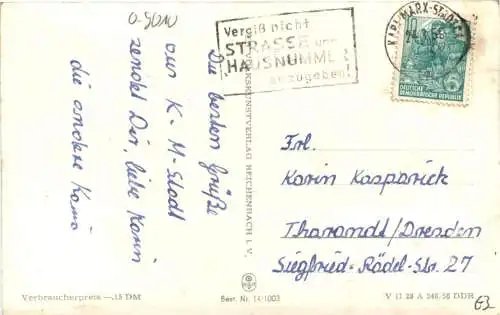 o-9010
Vergiß nicht
STRASSE und
HAUSNUMME
anzugeben.
KARL-MARX-STADT
DEUTSCHE
DEMOKRATISCHE REPUBLIK
Die besten Grüße
aus K-M-Stadt
sendet Dir, liebe Karin
die andere Karin
VOLKSKUNSTVERLAG REICHENBACH I. V.
Frl.
Karin Kasparick
Tharandt/Dresden
Siegfried-Rädel-Str. 27
Verbraucherpreis —,15 DM
Best. Nr. 14/1003
V 11 28 A 246/56 DDR